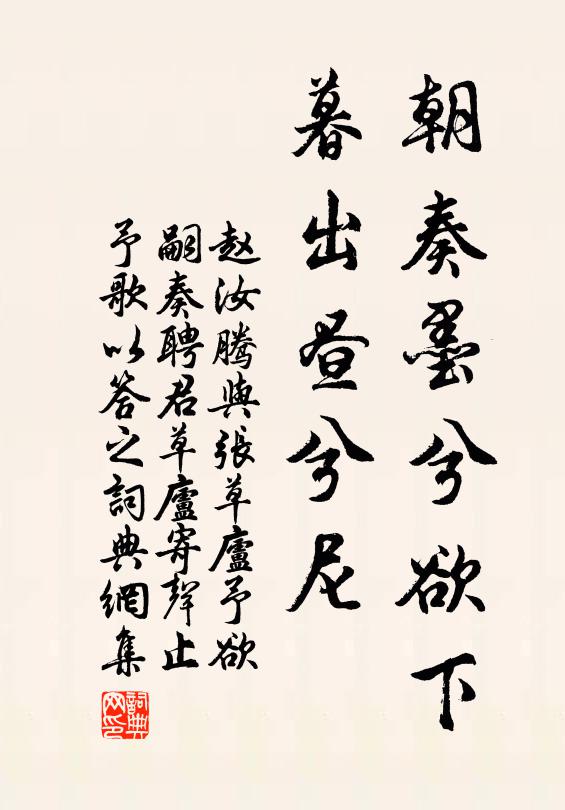 朝奏墨兮欲下
暮出昼兮尼
赵汝腾與張草廬予欲
嗣奏聘君草廬寄聲止
予歌以答之詞典網集
詞典网印